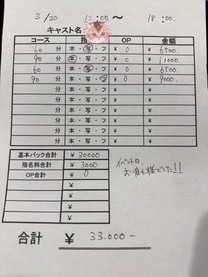 3/20 1 :00 〜 18:00
キャスト名
コース 指 OP 金額
60 分 本・写・フ ¥ 0 ¥ 6500
90 分 本・写・フ ¥ 0 ¥ 11000
60 分 本・写・フ ¥ 0 ¥ 6500
90 分 本・写・フ ¥ 0 ¥ 9000
分 本・写・フ ¥ ¥
分 本・写・フ ¥ ¥
分 本・写・フ ¥ ¥
分 本・写・フ ¥ ¥
分 本・写・フ ¥ ¥
分 本・写・フ ¥ ¥
基本バック合計 ¥ 30000
指名料合計 ¥ 3000
OP合計 ¥ 0
¥
¥
¥
¥
イベント日
お疲れ様でした!!
合計 ¥ 33.000-